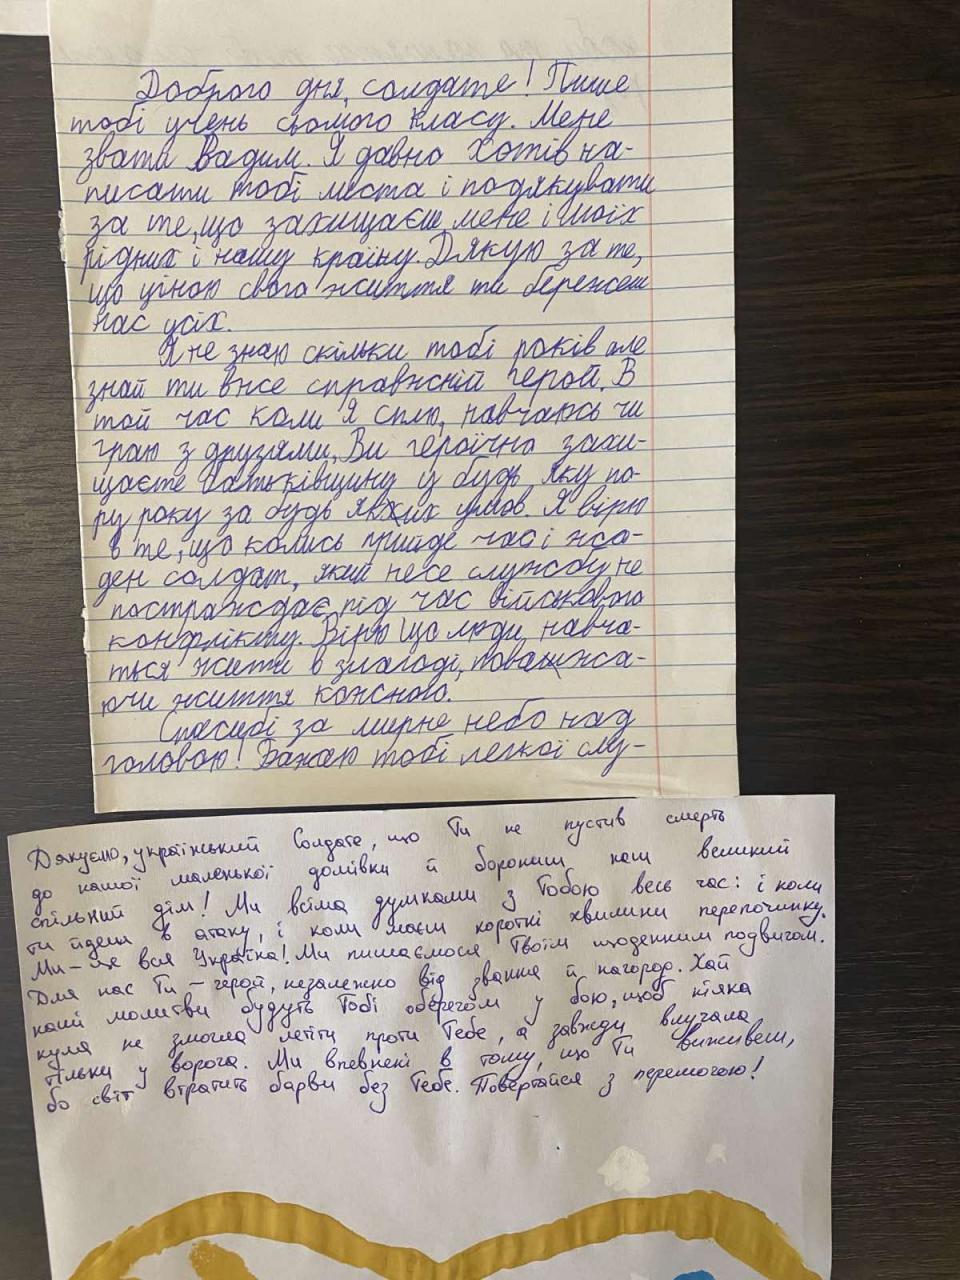 Доброго дня, солдате! Пише
тобі учень сьомого класу. Мене
звати Вадим. Я давно хотів на-
писати тобі листа і подякувати
за те, що захищаєш мене і моїх
рідних і нашу країну. Дякую за те,
що ціною свого життя ти бережеш
нас усіх.
Я не знаю скільки тобі років але
знай ти вже справжній герой. В
той час коли я сплю, навчаюсь чи
граю з друзями, Ви героїчно захи-
щаєте батьківщину у будь яку по-
ру року за будь яких умов. Я вірю
в те, що колись прийде час і жо-
ден солдат, який несе службу не
постраждає під час військового
конфлікту. Вірю що люди навча-
ться жити в злагоді, поважа-
ючи життя кожного.
Спасибі за мирне небо над
головою! Бажаю тобі легкої слу-
Дякуємо, український Солдате, що Ти не пустив смерть
до нашої маленької домівки й борониш наш великий
спільний дім! Ми всіма думками з Тобою весь час: і коли
ти йдеш в атаку, і коли маєш короткі хвилини перепочинку.
Ми – це вся Україна! Ми пишаємося Твоїм щоденним подвигом.
Для нас Ти – герой, незалежно від звання й нагород. Хай
наші молитви будуть Тобі оберегом у бою, щоб ніяка
куля не змогла летіти проти Тебе, а завжди влучала
тільки у ворога. Ми впевнені в тому, що Ти виживеш,
бо світ втратить барви без Тебе. Повертайся з перемогою!